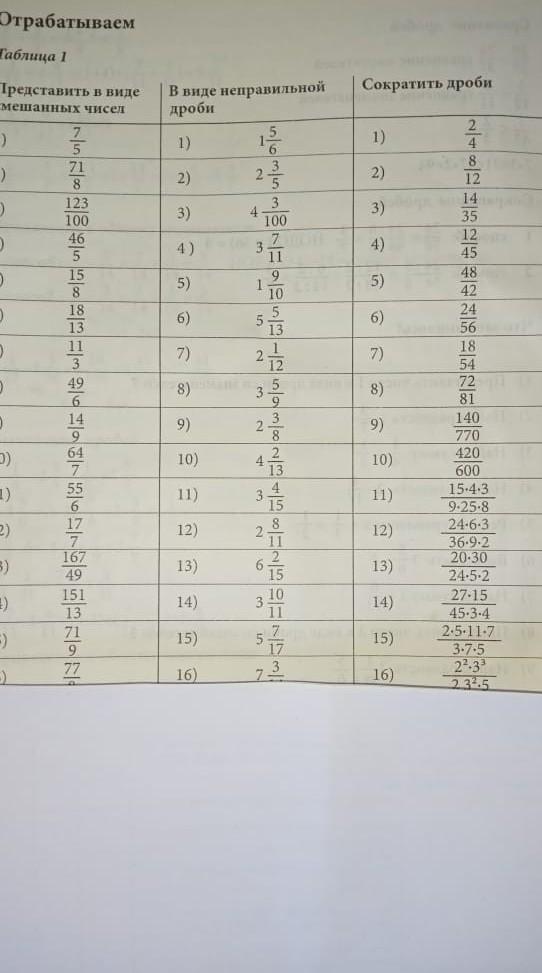 Отрабатываем
Таблица 1
Представить в виде смешанных чисел | В виде неправильной дроби | Сократить дроби
) 7/5 | 1) 1 5/6 | 1) 2/4
) 71/8 | 2) 2 3/5 | 2) 8/12
) 123/100 | 3) 4 3/100 | 3) 14/35
) 46/5 | 4) 3 7/11 | 4) 12/45
) 15/8 | 5) 1 9/10 | 5) 48/42
) 18/13 | 6) 5 5/13 | 6) 24/56
) 11/3 | 7) 2 1/12 | 7) 18/54
) 49/6 | 8) 3 5/9 | 8) 72/81
) 14/9 | 9) 2 3/8 | 9) 140/770
0) 64/7 | 10) 4 2/13 | 10) 420/600
1) 55/6 | 11) 3 4/15 | 11) 15·4·3/9·25·8
2) 17/7 | 12) 2 8/11 | 12) 24·6·3/36·9·2
3) 167/49 | 13) 6 2/15 | 13) 20·30/24·5·2
4) 151/13 | 14) 3 10/11 | 14) 27·15/45·3·4
) 71/9 | 15) 5 7/17 | 15) 2·5·11·7/3·7·5
) 77 | 16) 7 3 | 16) 2²·3³/2·3²·5